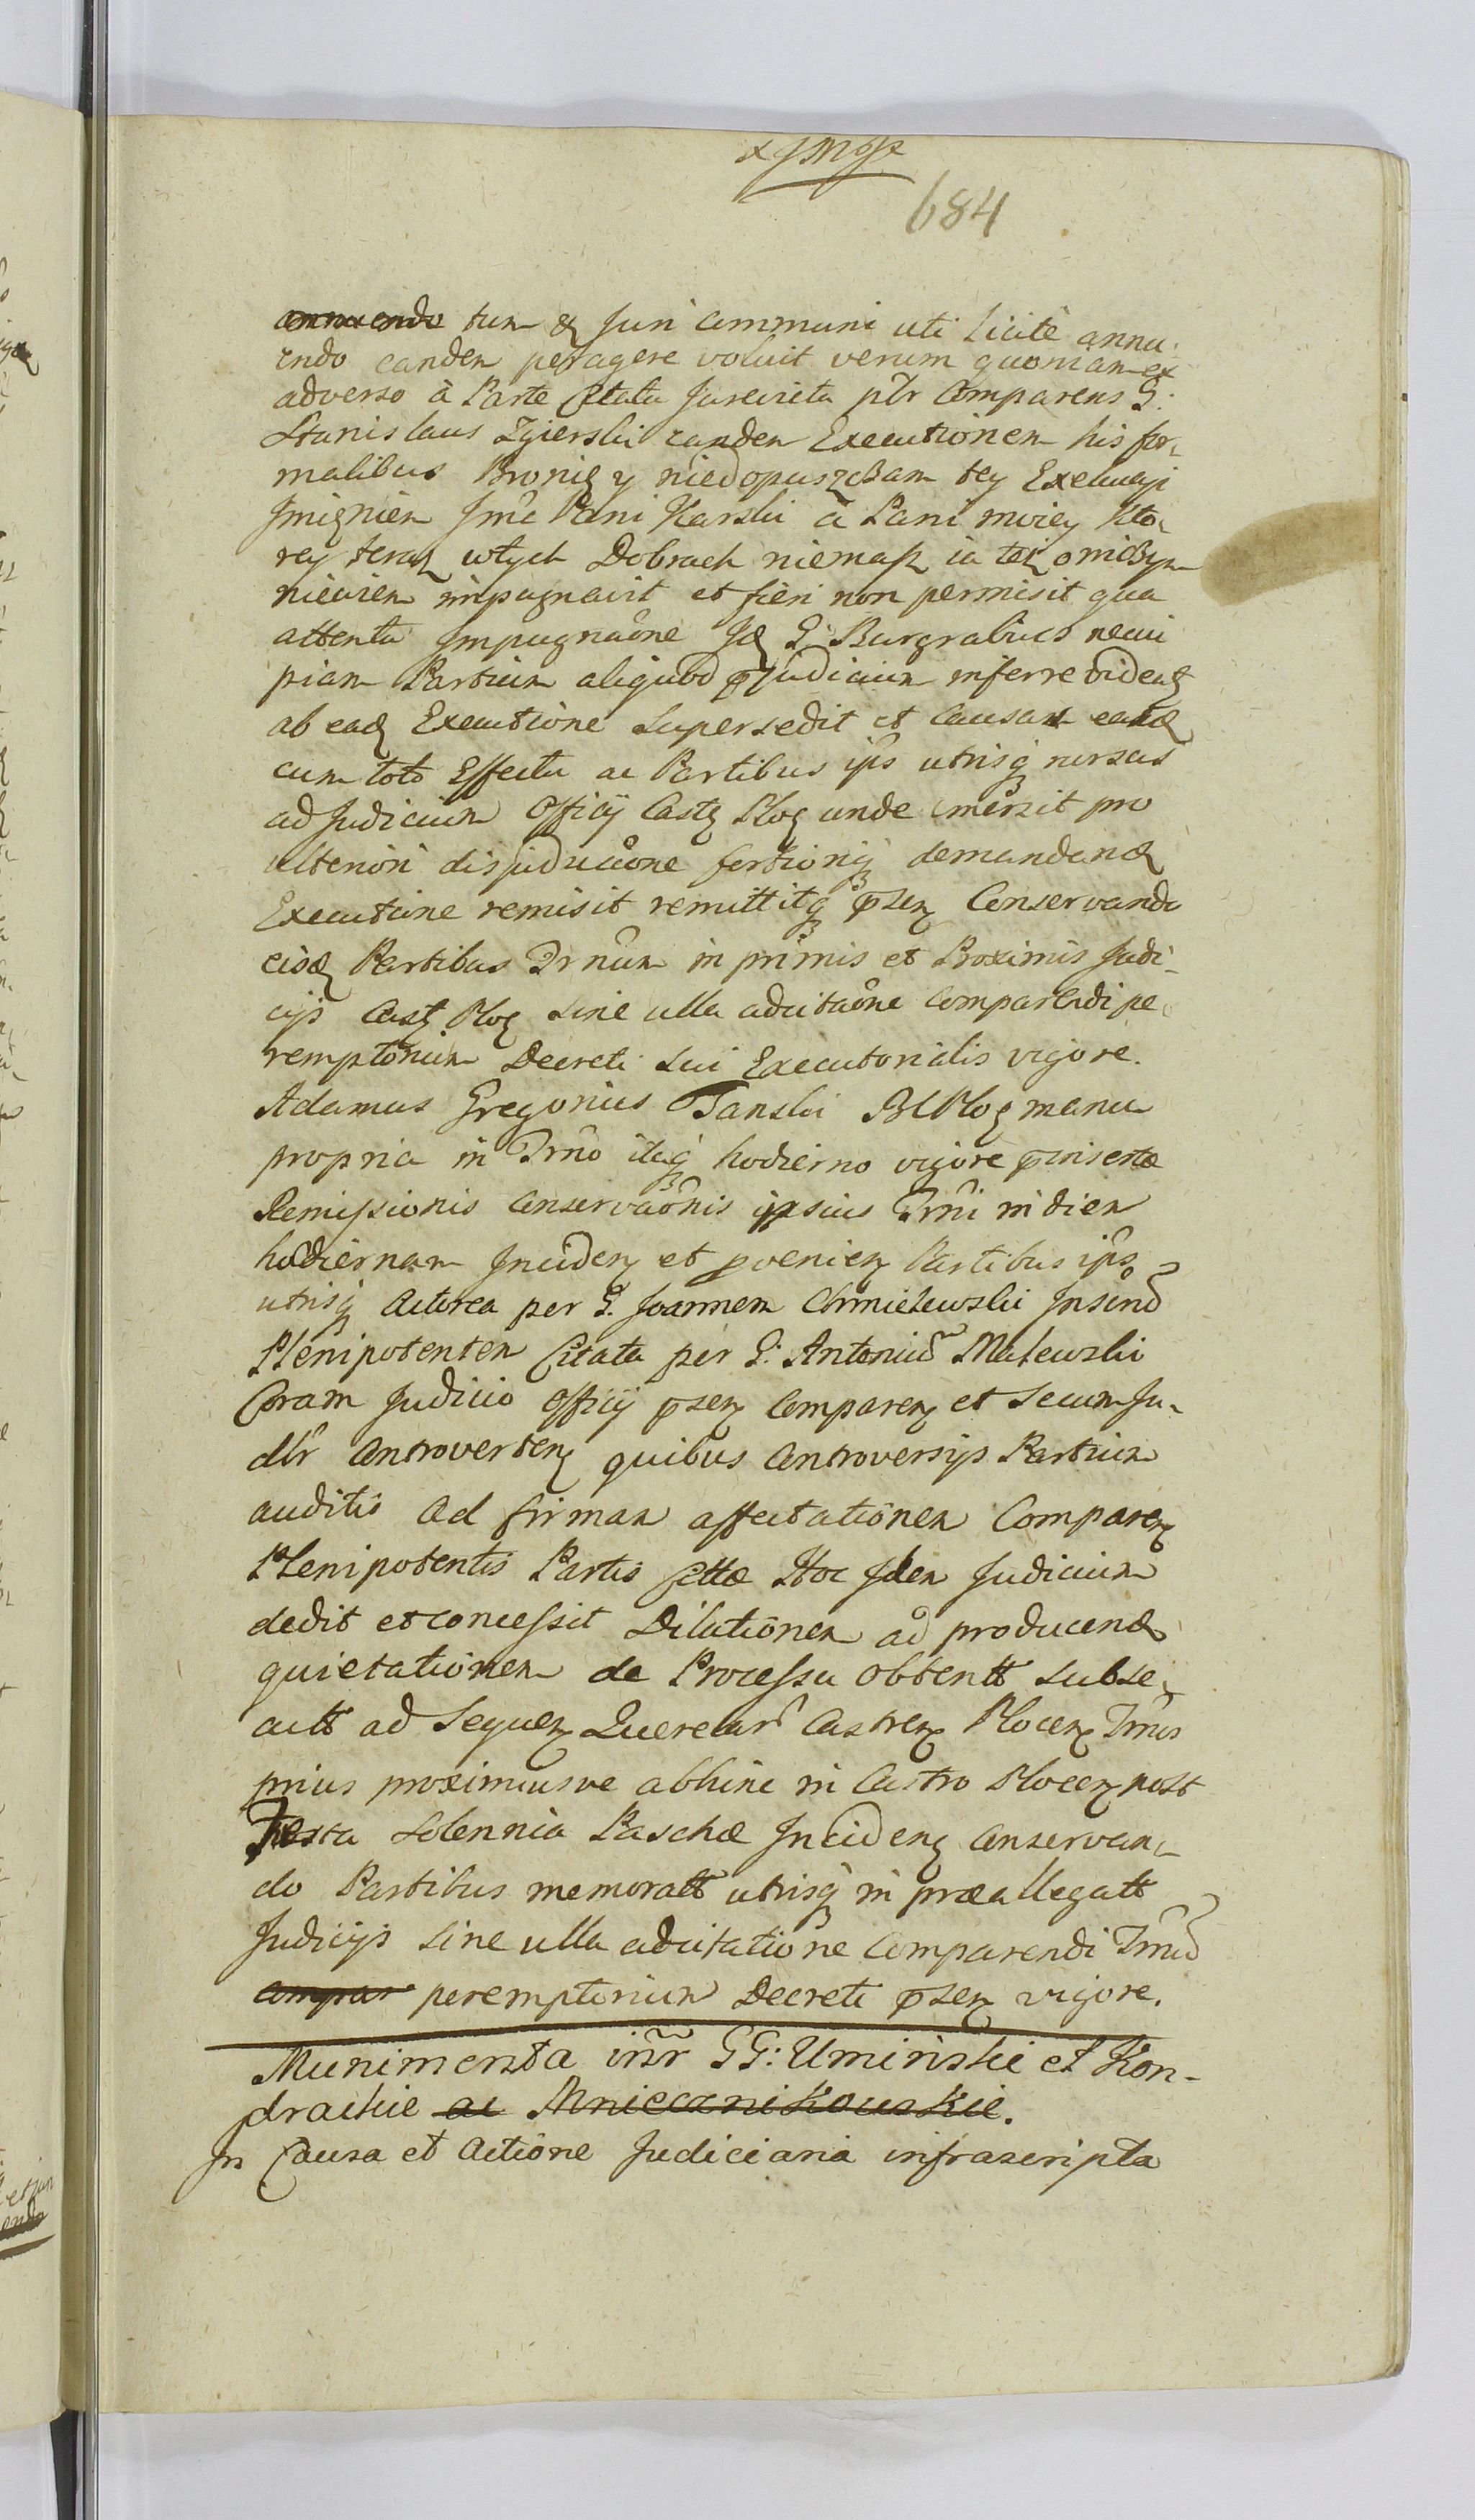 684
annuendo tum & Juri Communi uti Licite annu-
endo eandem peragere voluit verum quoniam ex
adverso à Parte Citata Jurevicta ptr Comparens G:
Stanislaus Zgierski eandem Executionem his for-
malibus Bronię y niedopuszcżam tey Exekucyi
Jmięniem Jmć Pani Karski à Pani moiey kto-
rey teraz wtych Dobrach niemasz ia też o niczym
niewiem impugnavit et fieri non permisit qua
attenta Impugnaōne Idē G. Burgrabius
piam Partium aliquod p̄judicium inferre videat̄
ab eadē Executione Supersedit et Causam eandē
cum toto Effectu ac Partibus ip̄s utrisq̄ rursus
ad Judicium Officÿ Castr̄ Ploc̄ unde emersit pro
ulteriori dijudicaōne fortioriq̄ demandandē
Executione remisit remittitq̄ p̄sen̄ Conservando
eisdē Partibus Trn̄um in primis et Proximis Judi-
cÿs Castr̄ Ploc̄ sine ulla adcitaōne Comparendi pe-
remptorium Decreti Sui Executorialis vigore.
Adamus Gregorius Tanski BCPloc̄ manu
propria in Trn̄o itaq̄ hodierno vigore p̄insertæ
Remissionis Conservaōnis ipsius Trn̄i in diem
hodiernam Inciden̄ et p̄venien̄ Partibus ip̄s
utrisq̄ Actorea per G. Joannem Chmielewski Inscrib̄
Plenipotentem Citata per G: Antoniū Malewski
Coram Judicio Officÿ p̄sen̄ Comparen̄ et Secum Ju-
dlr̄ Controverten̄ quibus Controversÿs Partium
auditis ad firmam affectationem Comparen̄
Plenipotentis Partis Cittæ Hoc Idem Judicium
dedit et concessit Dilationem ad producend̄
quietationem de Processu obtentt subse-
cutt ad Sequen̄ Querelar̄ Castren̄ Plocen̄ Trn̄os
prius proximiusve abhinc in Castro Plocen̄ post
Festa Solennia Paschæ Inciden̄ Conservan-
do Partibus memoratt utrisq̄ in præallegatt
Judicÿs Sine ulla adcitatione Comparendi Trn̄ū
compar peremptorium Decreti p̄sen̄ vigore.
Munimenta intr̄ GG: Uminskie et Kon-
drackie ac Mniecznikowskie.
In Causa et Actione Judiciaria infrascripta